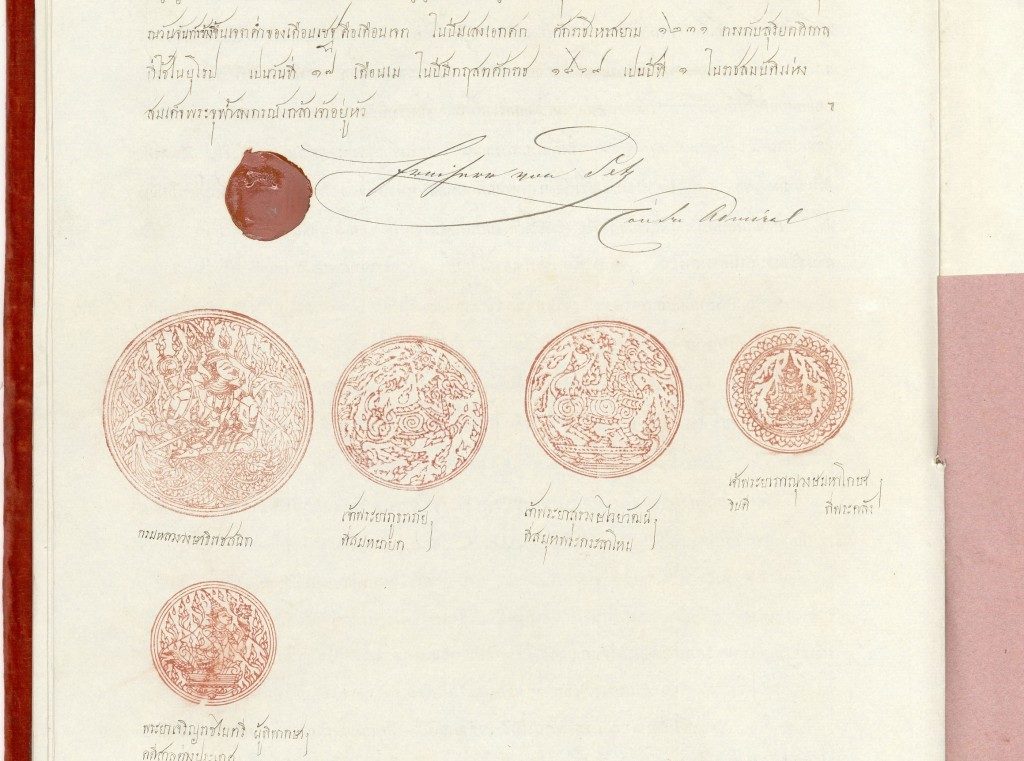 ณวันจันทร์ขึ้นเจดค่ำของเดือนเชฐ คือเดือนเจด ในปีมเสงเอกศก ศักราชไทสยาม ๑๒๓๑ ตรงกับสุริยคติกาล
ที่ใช้ในยุโรป เปนวันที่ ๑๗ เดือนเม ในปีมีคฤสตศักราช ๑๘๖๙ เปนปีที่ ๑ ในราชสมบัติแห่ง
สมเด็จพระจุฬาลงกรณ์เกล้าเจ้าอยู่หัว
Freiherr von Petz
Contre Admiral
กรมหลวงวงษาธิราชสนิท
เจ้าพระยาภูธราภัย
ที่สมุหนายก
เจ้าพระยาสุรวงษไวยวัฒน์
ที่สมุหพระกระลาโหม
เจ้าพระยาภาณุวงษมหาโกษา
ธิบดี ที่พระคลัง
พระยาเจริญราชไมตรี ผู้พิพากษา
คดีศาลต่างประเทศ